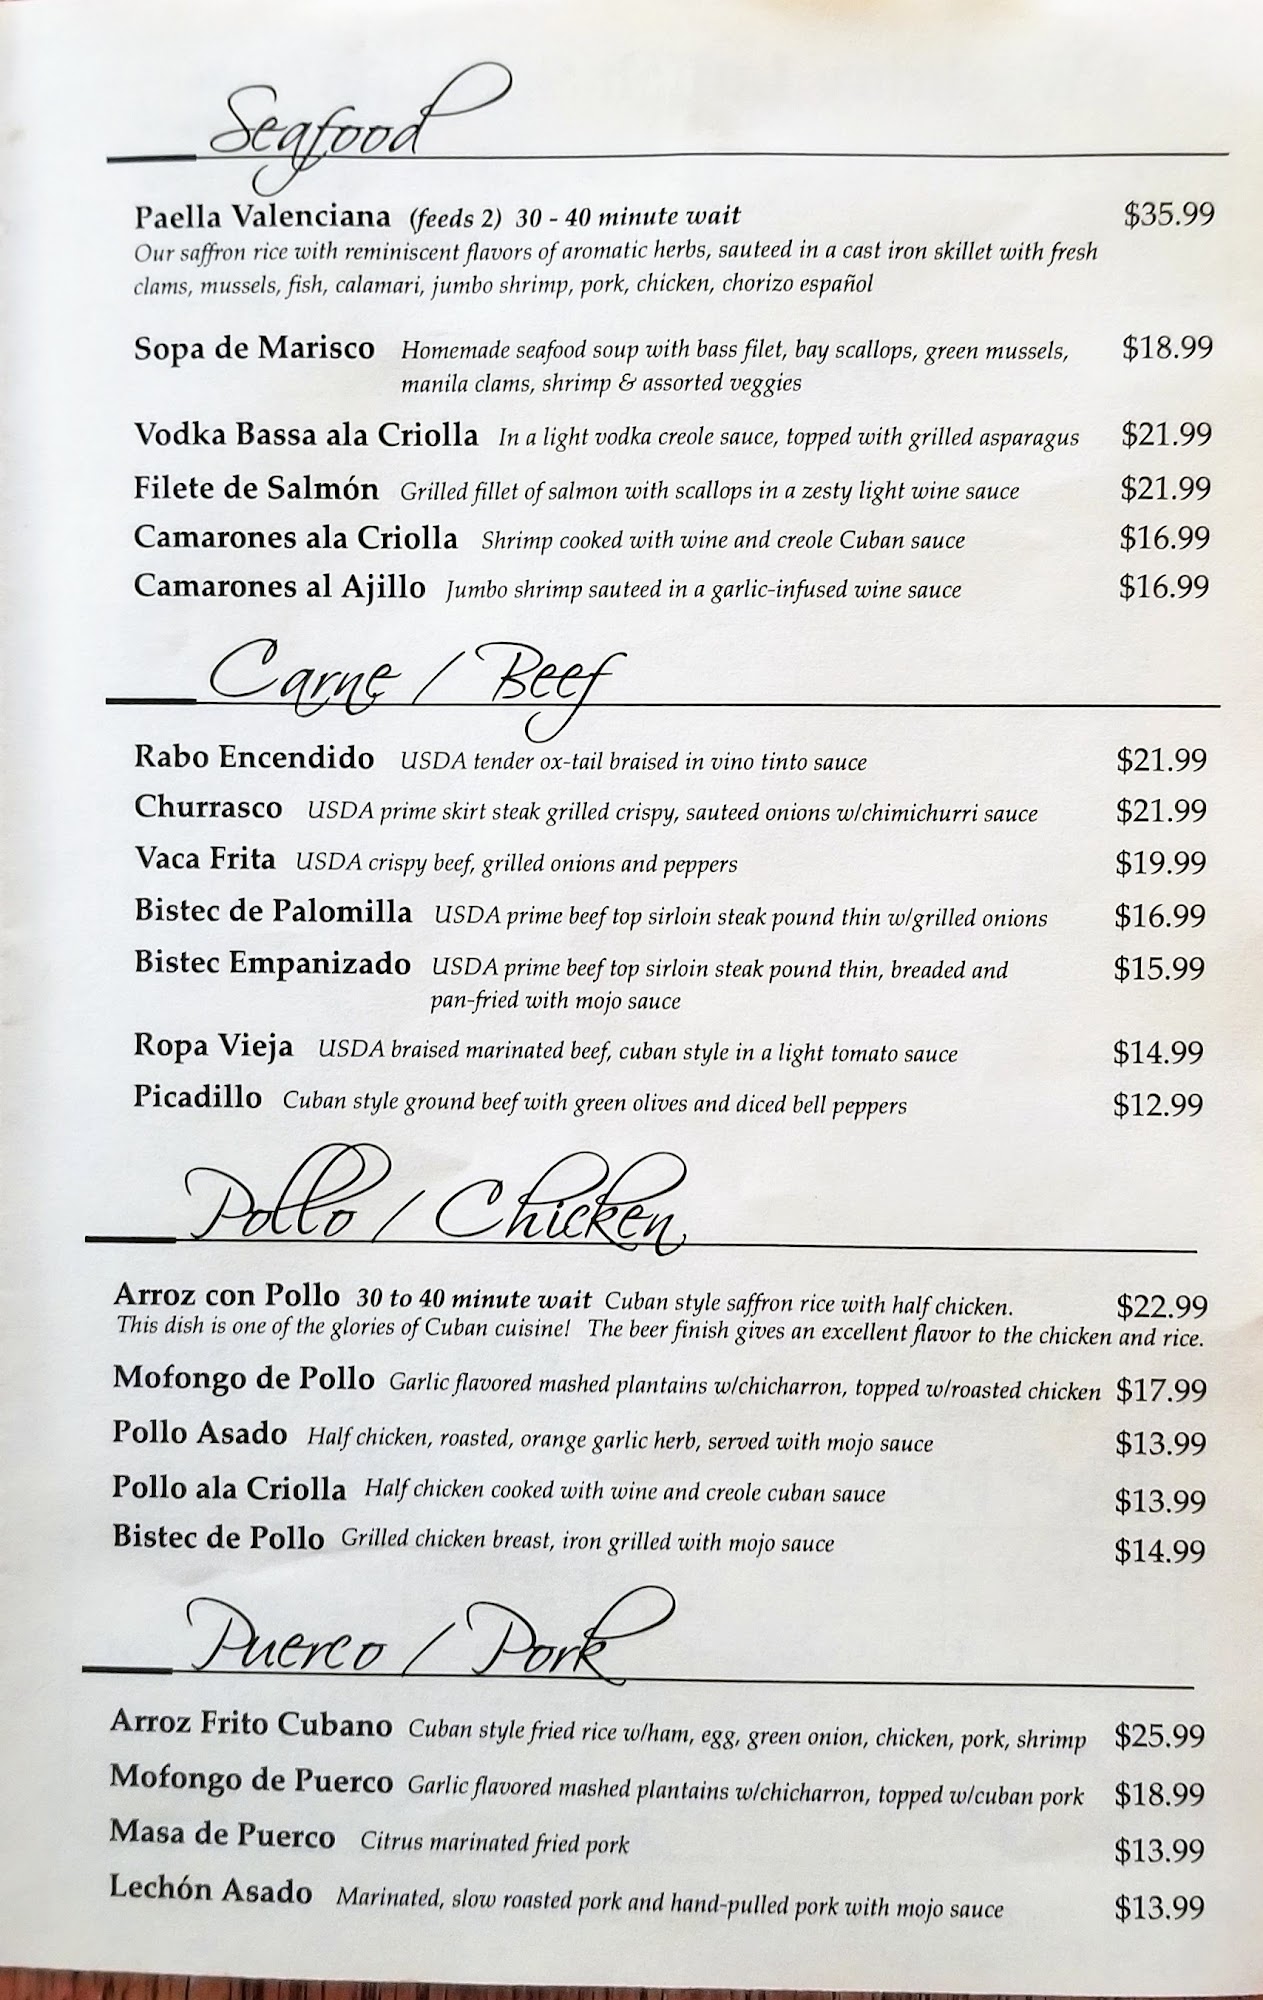 Seafood
Paella Valenciana (feeds 2) 30 - 40 minute wait $35.99
Our saffron rice with reminiscent flavors of aromatic herbs, sauteed in a cast iron skillet with fresh
clams, mussels, fish, calamari, jumbo shrimp, pork, chicken, chorizo español
Sopa de Marisco Homemade seafood soup with bass filet, bay scallops, green mussels, $18.99
manila clams, shrimp & assorted veggies
Vodka Bassa ala Criolla In a light vodka creole sauce, topped with grilled asparagus $21.99
Filete de Salmón Grilled fillet of salmon with scallops in a zesty light wine sauce $21.99
Camarones ala Criolla Shrimp cooked with wine and creole Cuban sauce $16.99
Camarones al Ajillo Jumbo shrimp sauteed in a garlic-infused wine sauce $16.99
Carne / Beef
Rabo Encendido USDA tender ox-tail braised in vino tinto sauce $21.99
Churrasco USDA prime skirt steak grilled crispy, sauteed onions w/chimichurri sauce $21.99
Vaca Frita USDA crispy beef, grilled onions and peppers $19.99
Bistec de Palomilla USDA prime beef top sirloin steak pound thin w/grilled onions $16.99
Bistec Empanizado USDA prime beef top sirloin steak pound thin, breaded and $15.99
pan-fried with mojo sauce
Ropa Vieja USDA braised marinated beef, cuban style in a light tomato sauce $14.99
Picadillo Cuban style ground beef with green olives and diced bell peppers $12.99
Pollo / Chicken
Arroz con Pollo 30 to 40 minute wait Cuban style saffron rice with half chicken. $22.99
This dish is one of the glories of Cuban cuisine! The beer finish gives an excellent flavor to the chicken and rice.
Mofongo de Pollo Garlic flavored mashed plantains w/chicharron, topped w/roasted chicken $17.99
Pollo Asado Half chicken, roasted, orange garlic herb, served with mojo sauce $13.99
Pollo ala Criolla Half chicken cooked with wine and creole cuban sauce $13.99
Bistec de Pollo Grilled chicken breast, iron grilled with mojo sauce $14.99
Puerco / Pork
Arroz Frito Cubano Cuban style fried rice w/ham, egg, green onion, chicken, pork, shrimp $25.99
Mofongo de Puerco Garlic flavored mashed plantains w/chicharron, topped w/cuban pork $18.99
Masa de Puerco Citrus marinated fried pork $13.99
Lechón Asado Marinated, slow roasted pork and hand-pulled pork with mojo sauce $13.99